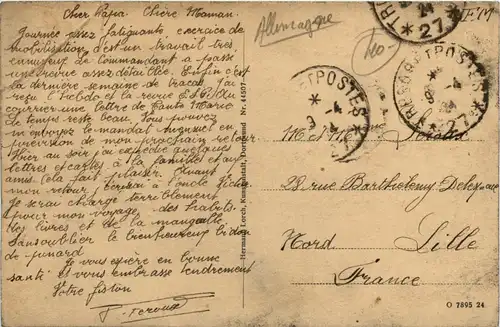 Cher Papa. Chère Maman.
Journée assez fatigante, exercice de
mobilisation, c'est un travail très
ennuyeux le Commandant a passé
une revue assez détaillée. Enfin c'est
la dernière semaine de tracas. J'ai
reçu l'hebdo et la revue E.S.P. Du
courrier une lettre de Tante Marie
Le temps reste beau. Vous pouvez
m'envoyer le mandat mensuel en
prévision de mon prochain retour.
Hier au soir j'ai expédié quelques
lettres et cartes à la famille et aux
amis cela fait plaisir. Quant à
mon retour, l'oncle
Je serai chargé terriblement
pour mon voyage, des habits
des livres et de la mangeaille
Sans oublier le bienheureux bidon
de pinard
Je vous espère en bonne
santé et vous embrasse tendrement
Votre fiston
Allemagne
F.M.
TRESOR ET POSTES
* 27 *
24
TRESOR ET POSTES
* 27 *
TRESOR ET POSTES
28 rue Barthélemy Delespaul
Nord Lille
France
Hermann Lorch, Kunstanstalt, Dortmund Nr. 44507
O 7895 24